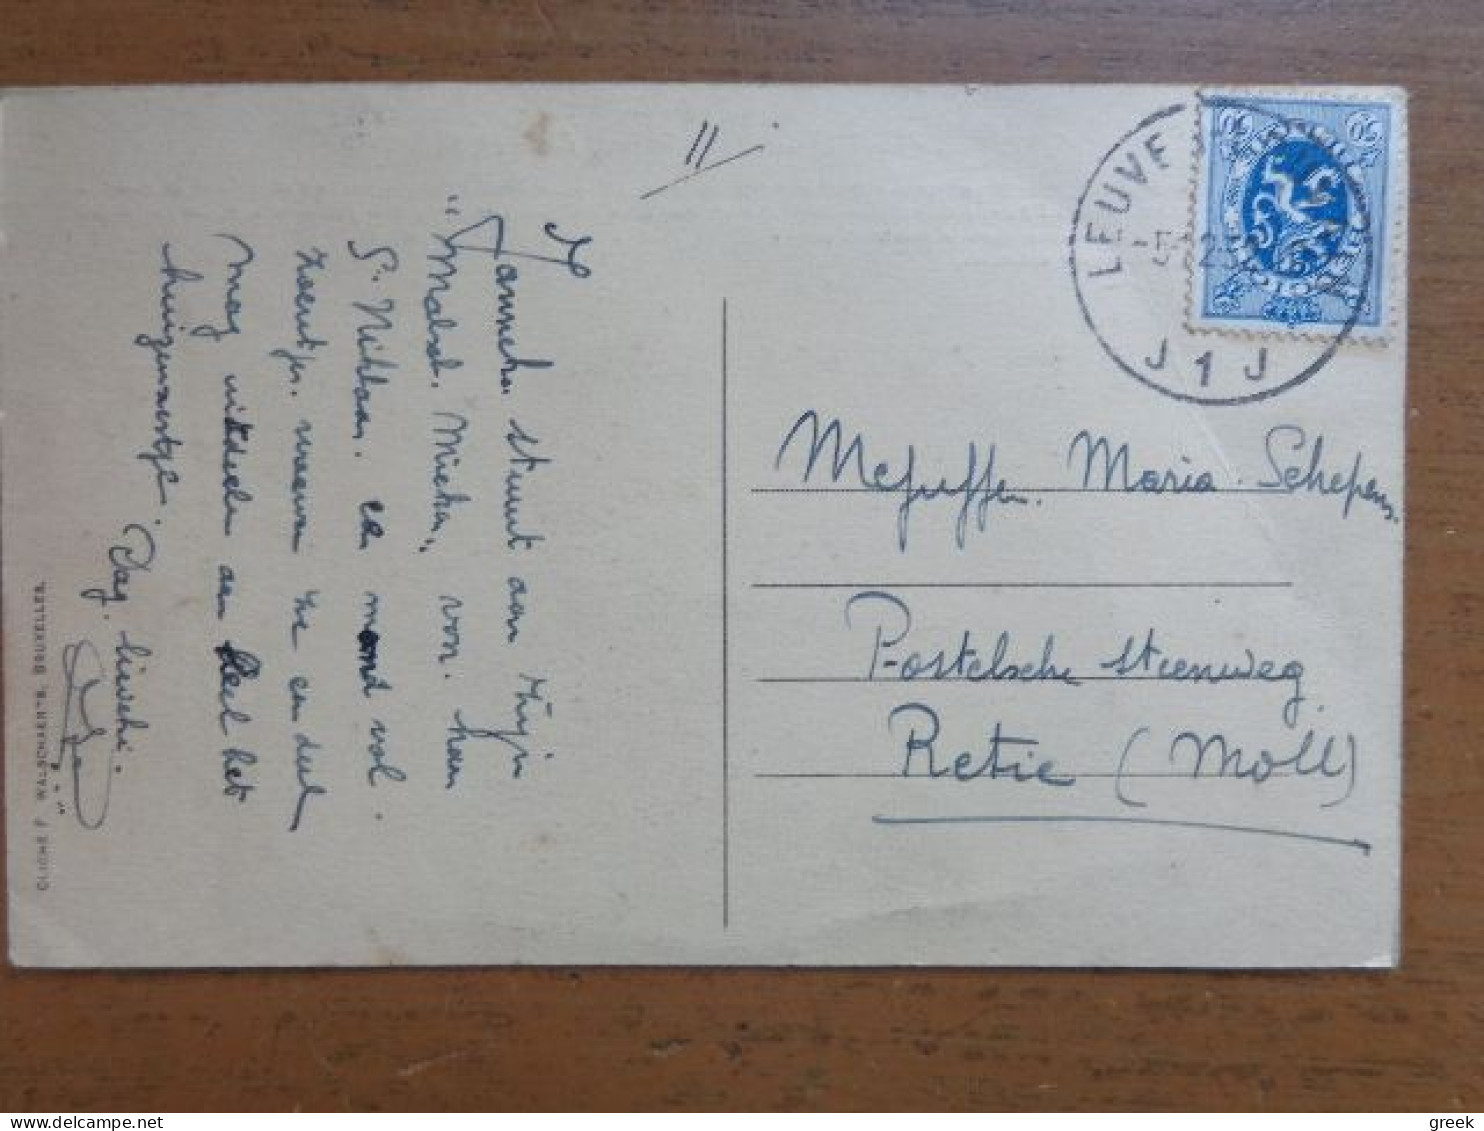 11
Janneke. stuurt aan zijn
"Mabel. Mieken„ van. hem
St Niklaas. een mond vol.
zoentjes. waarvan ze een deel
mag uitdelen aan heel het
huizemestje.
Dag. lieveke.
CLICHÉ F. WALSCHAERTS, BRUXELLES.
LEUVEN
J 1 J
50 50
Mejuffer. Maria. Schepens.
Postelsche steenweg
Retie (Moll)
delcampe.net
greek